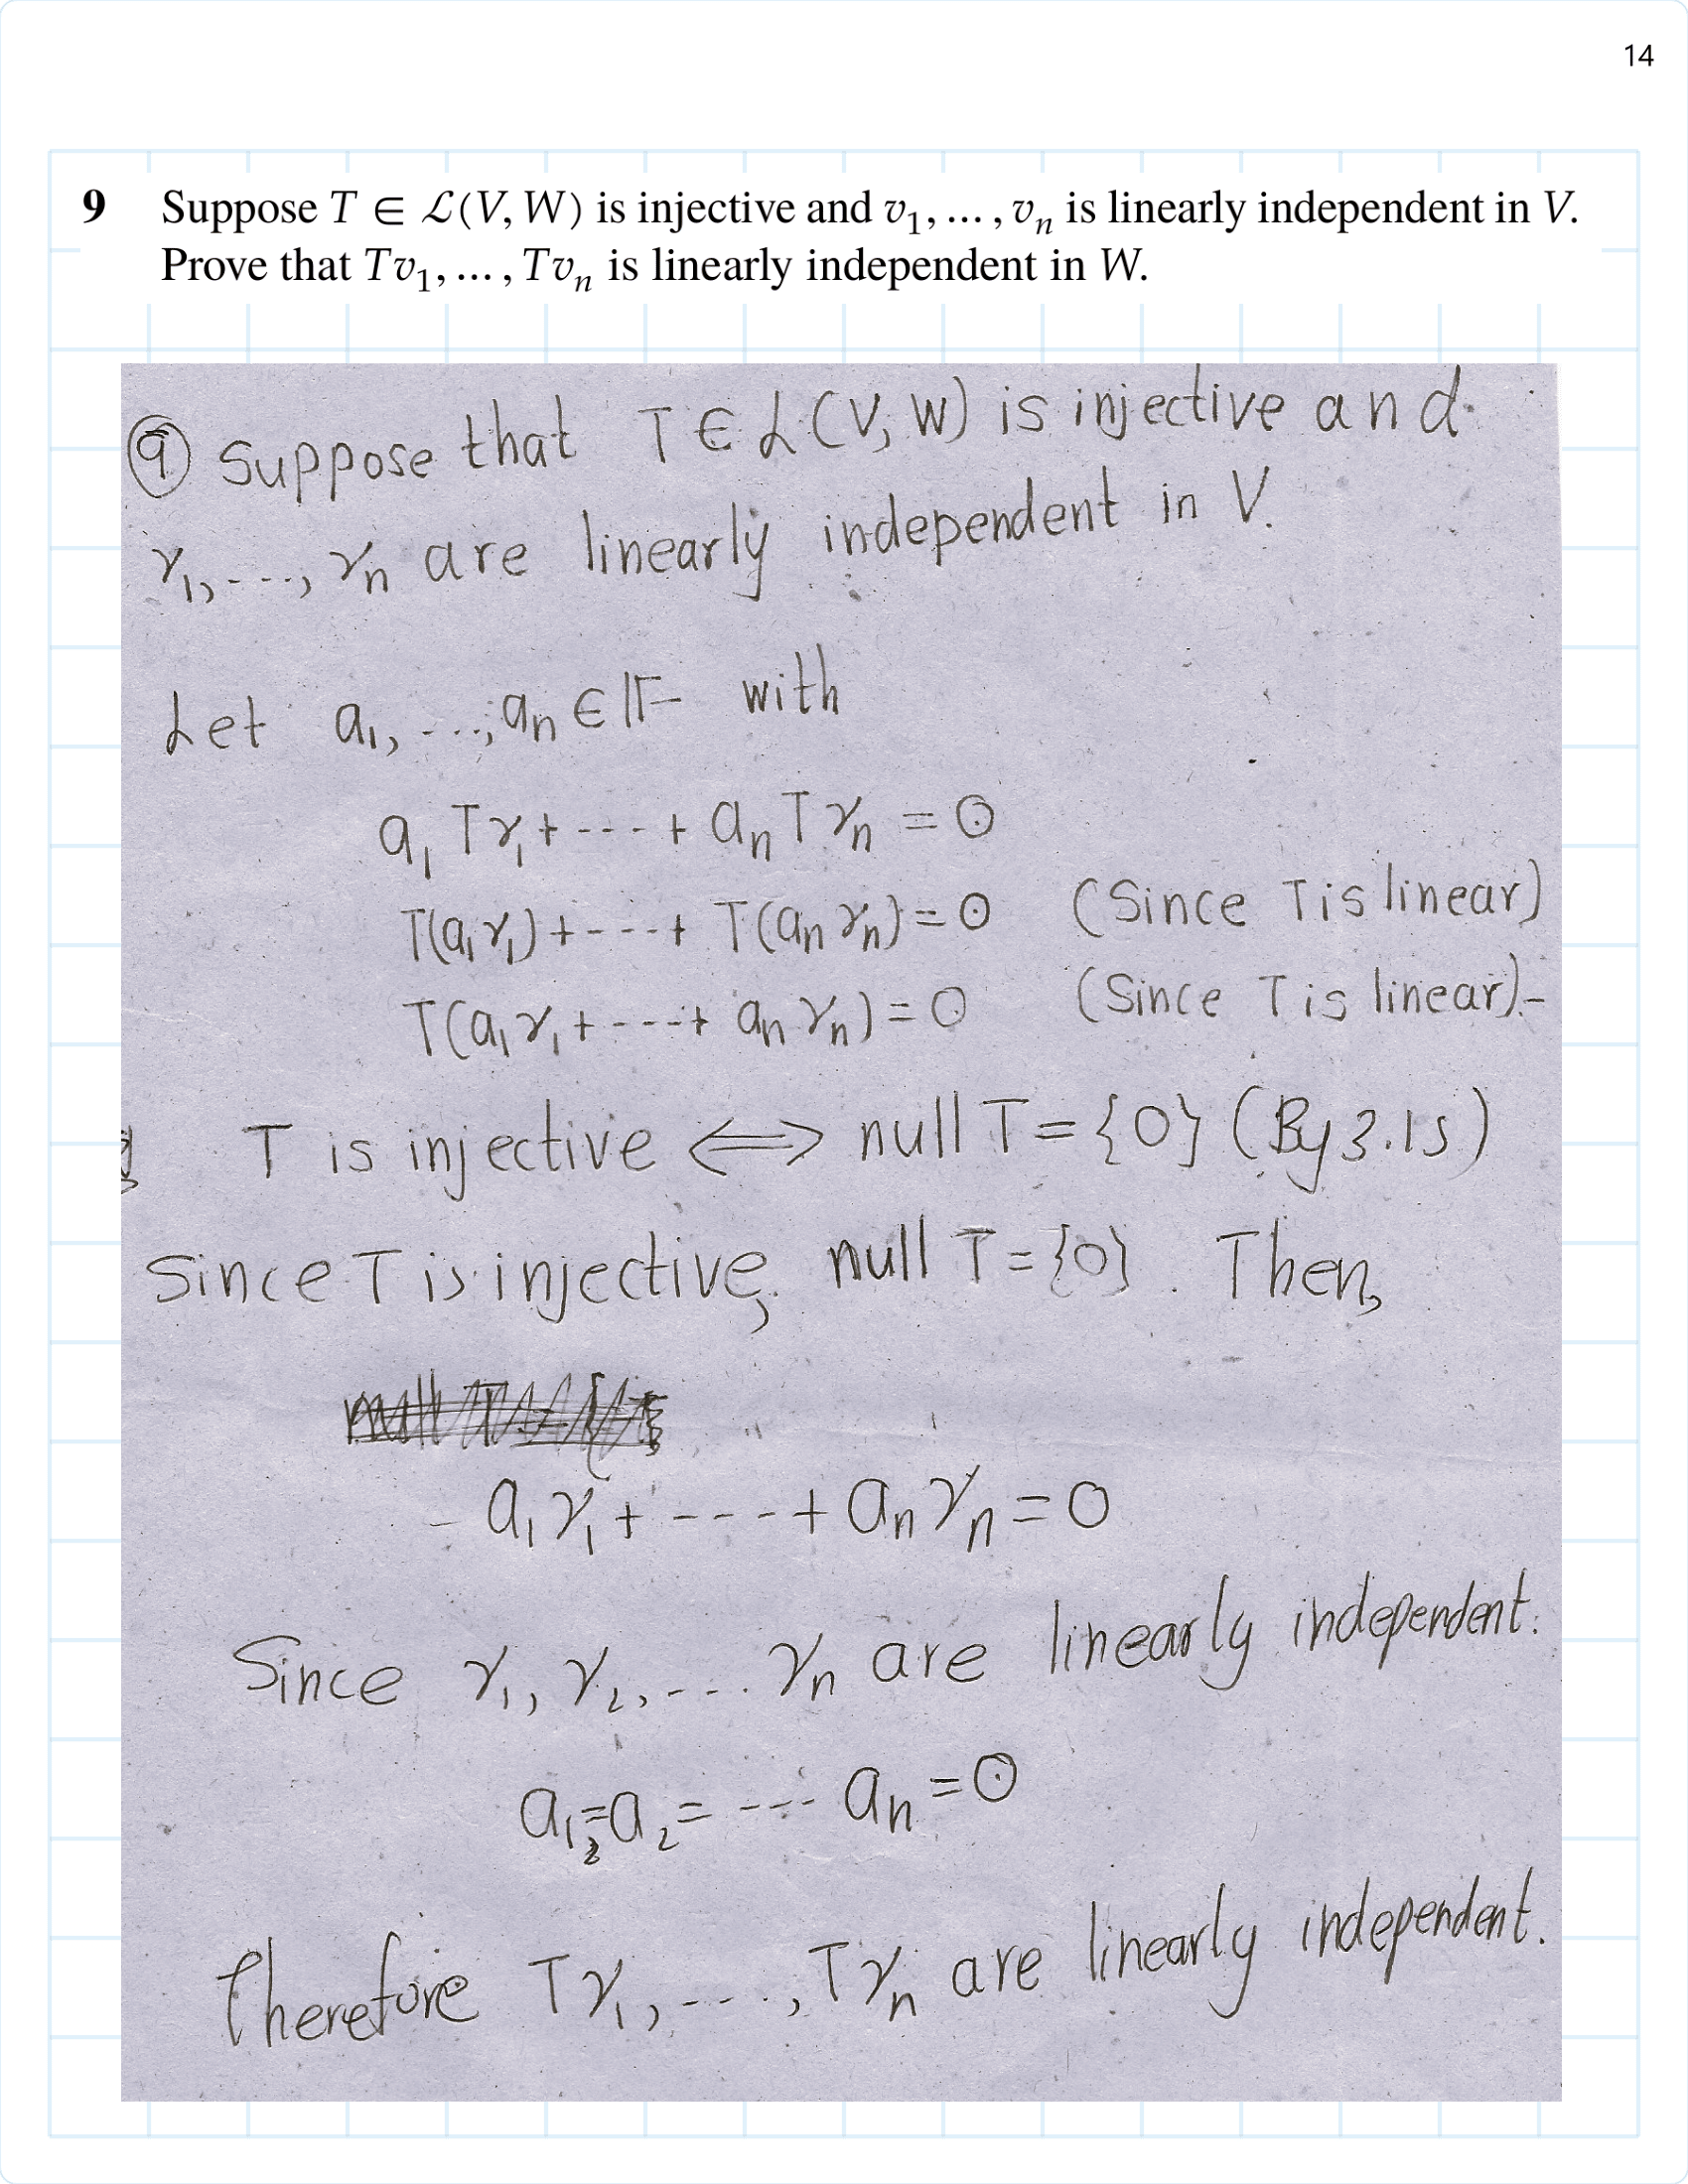 14
9 Suppose T ∈ ℒ(V, W) is injective and v₁, … , vₙ is linearly independent in V.
Prove that Tv₁, … , Tvₙ is linearly independent in W.
⑨ Suppose that T ∈ ℒ(V, W) is injective and
v₁, ..., vₙ are linearly independent in V.
Let a₁, ..., aₙ ∈ 𝔽 with
a₁Tv₁ + ---- + aₙTvₙ = 0
T(a₁v₁) + ---- + T(aₙvₙ) = 0 (Since T is linear)
T(a₁v₁ + ---- + aₙvₙ) = 0 (Since T is linear).
T is injective ⟺ null T = {0} (By 3.15)
Since T is injective, null T = {0}. Then,
a₁v₁ + ---- + aₙvₙ = 0
Since v₁, v₂, .... vₙ are linearly independent.
a₁ = a₂ = --- aₙ = 0
Therefore Tv₁, ----, Tvₙ are linearly independent.